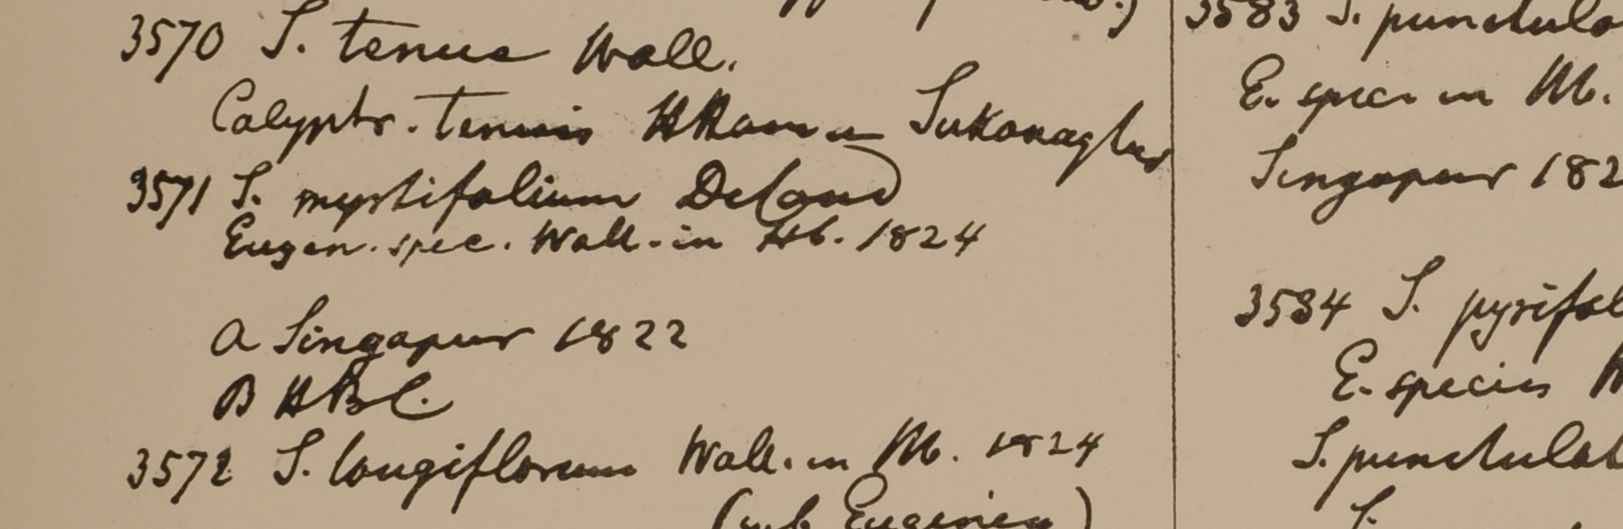 3570 S. tenue Wall.
Calyptr. tenuis HHam in Sukanaghur
3571 S. myrtifolium DeCand
Eugen. spec. Wall. in Hb. 1824
a Singapur 1822
B HBC.
3572 S. longiflorum Wall. in Hb. 1824
(sub Eugenia)
3583 S. punctula
E. spec. in Hb.
Singapur 182
3584 S. pyrifol
E. species
S. punctulat
S.